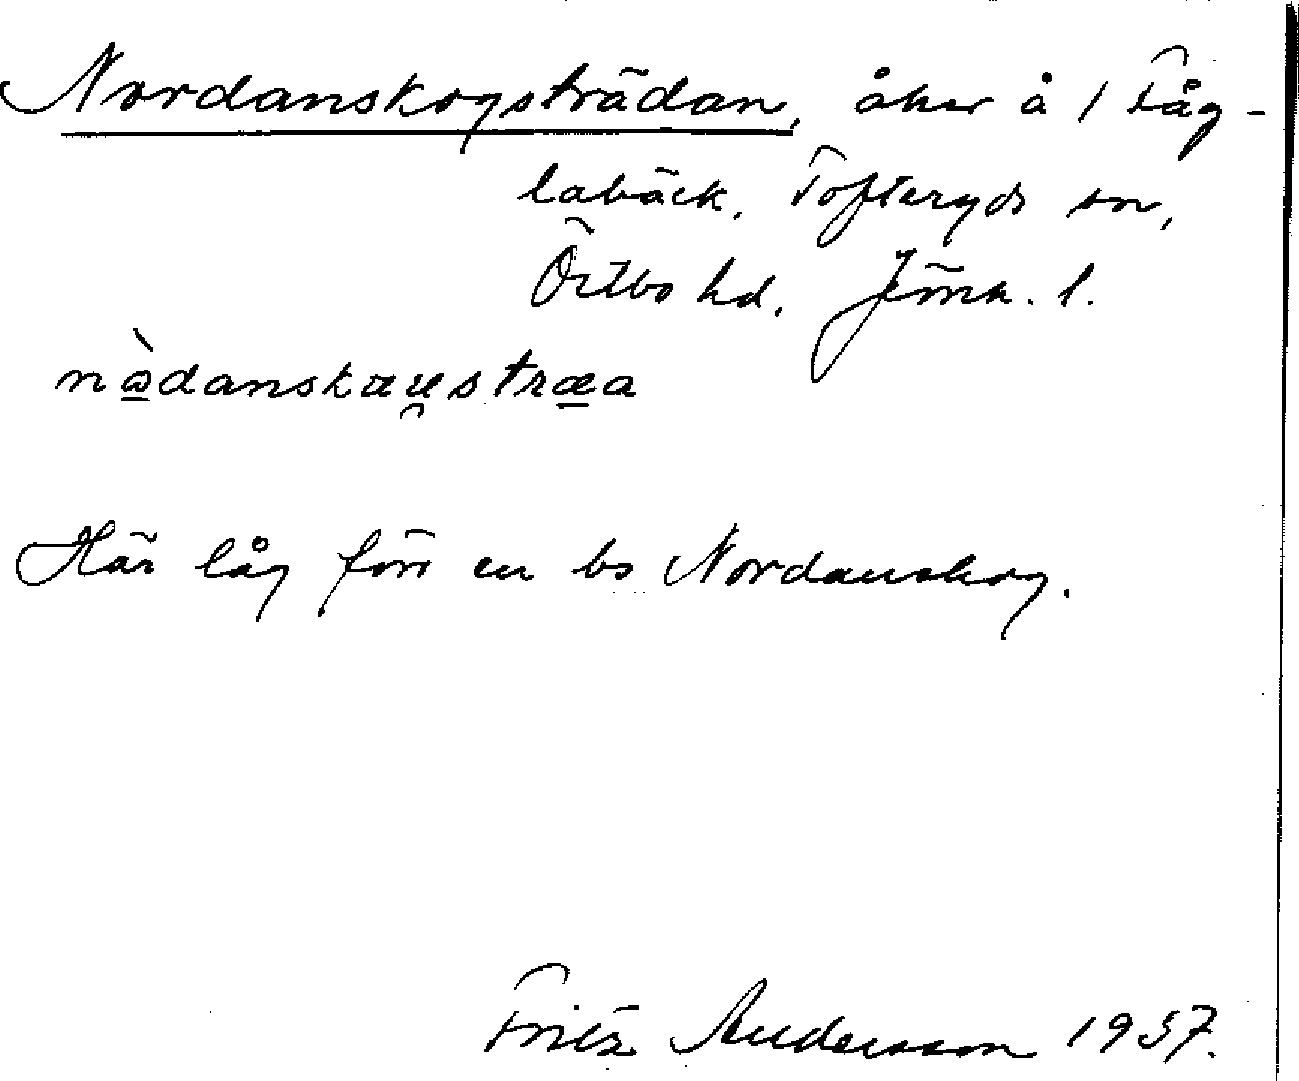 Nordanskogsträdan, åker å 1 Fåg-
labäck, Tofteryds sn,
Östbo hd. Jönk. l.
nòdanskæu̯stræa
Här låg förr en bs Nordanskog.
Fritz Andersson 1937.